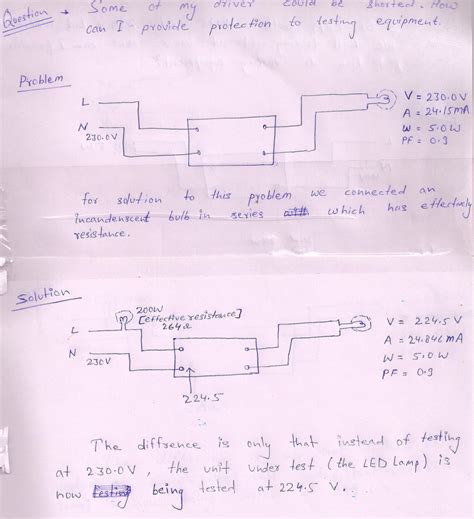 Question → Some of my driver could be shorted. How
can I provide protection to testing equipment.
Problem
L
N
230.0V
V = 230.0V
A = 24.15mA
W = 5.0W
PF = 0.9
for solution to this problem we connected an
incandenscent bulb in series with which has effectively
resistance.
Solution
200W
[effective resistance]
264Ω
L
N
230V
V = 224.5V
A = 24.846mA
W = 5.0W
PF = 0.9
224.5
The diffrence is only that instead of testing
at 230.0V, the unit under test (the LED lamp) is
now testing being tested at 224.5 V.